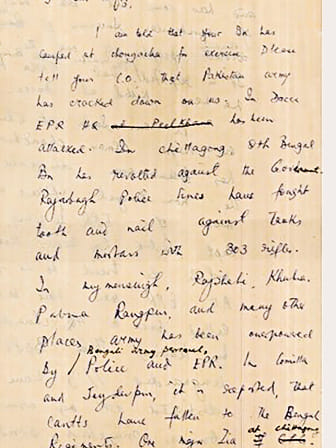 I am told that your Bn has
camped at chougacha for exercise. Please
tell your C.O. that Pakistan army
has cracked down on us. In Dacca
EPR HQ at Peelkhana has been
attacked. In chittagong, 8th Bengal
Bn has revolted against the Government.
Rajarbagh Police lines have fought
tooth and nail against Tanks
and mortars with 303 rifles.
In mymensingh, Rajshahi, Khulna,
Pabna Rangpur, and many other
places army has been overpowered
By / Bengali army personnel, Police and EPR. In Comilla
and Syedpur, it is reported, that
cantts have fallen to the Bengal
Regiments. One major Zia at chittagong